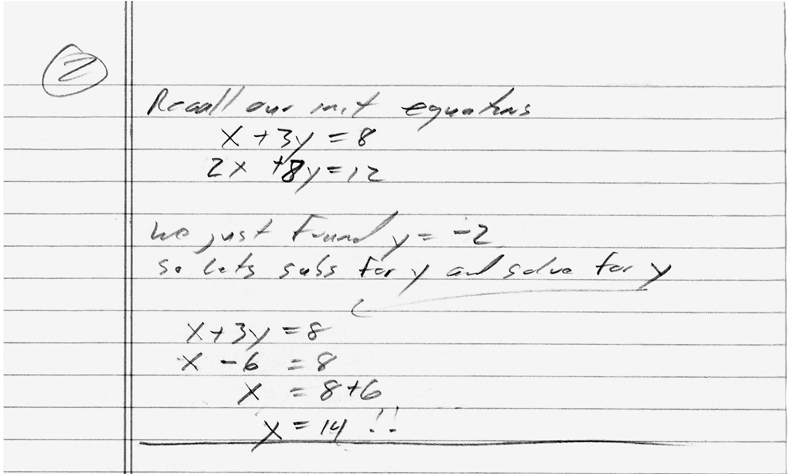 2
Recall our init equations
x + 3y = 8
2x + 8y = 12
we just Found y = -2
so lets subs for y and solve for y
x + 3y = 8
x - 6 = 8
x = 8 + 6
x = 14 !!